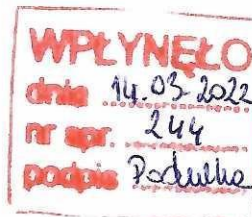 WPŁYNĘŁO
dnia 14.03.2022
nr spr. 244
podpis